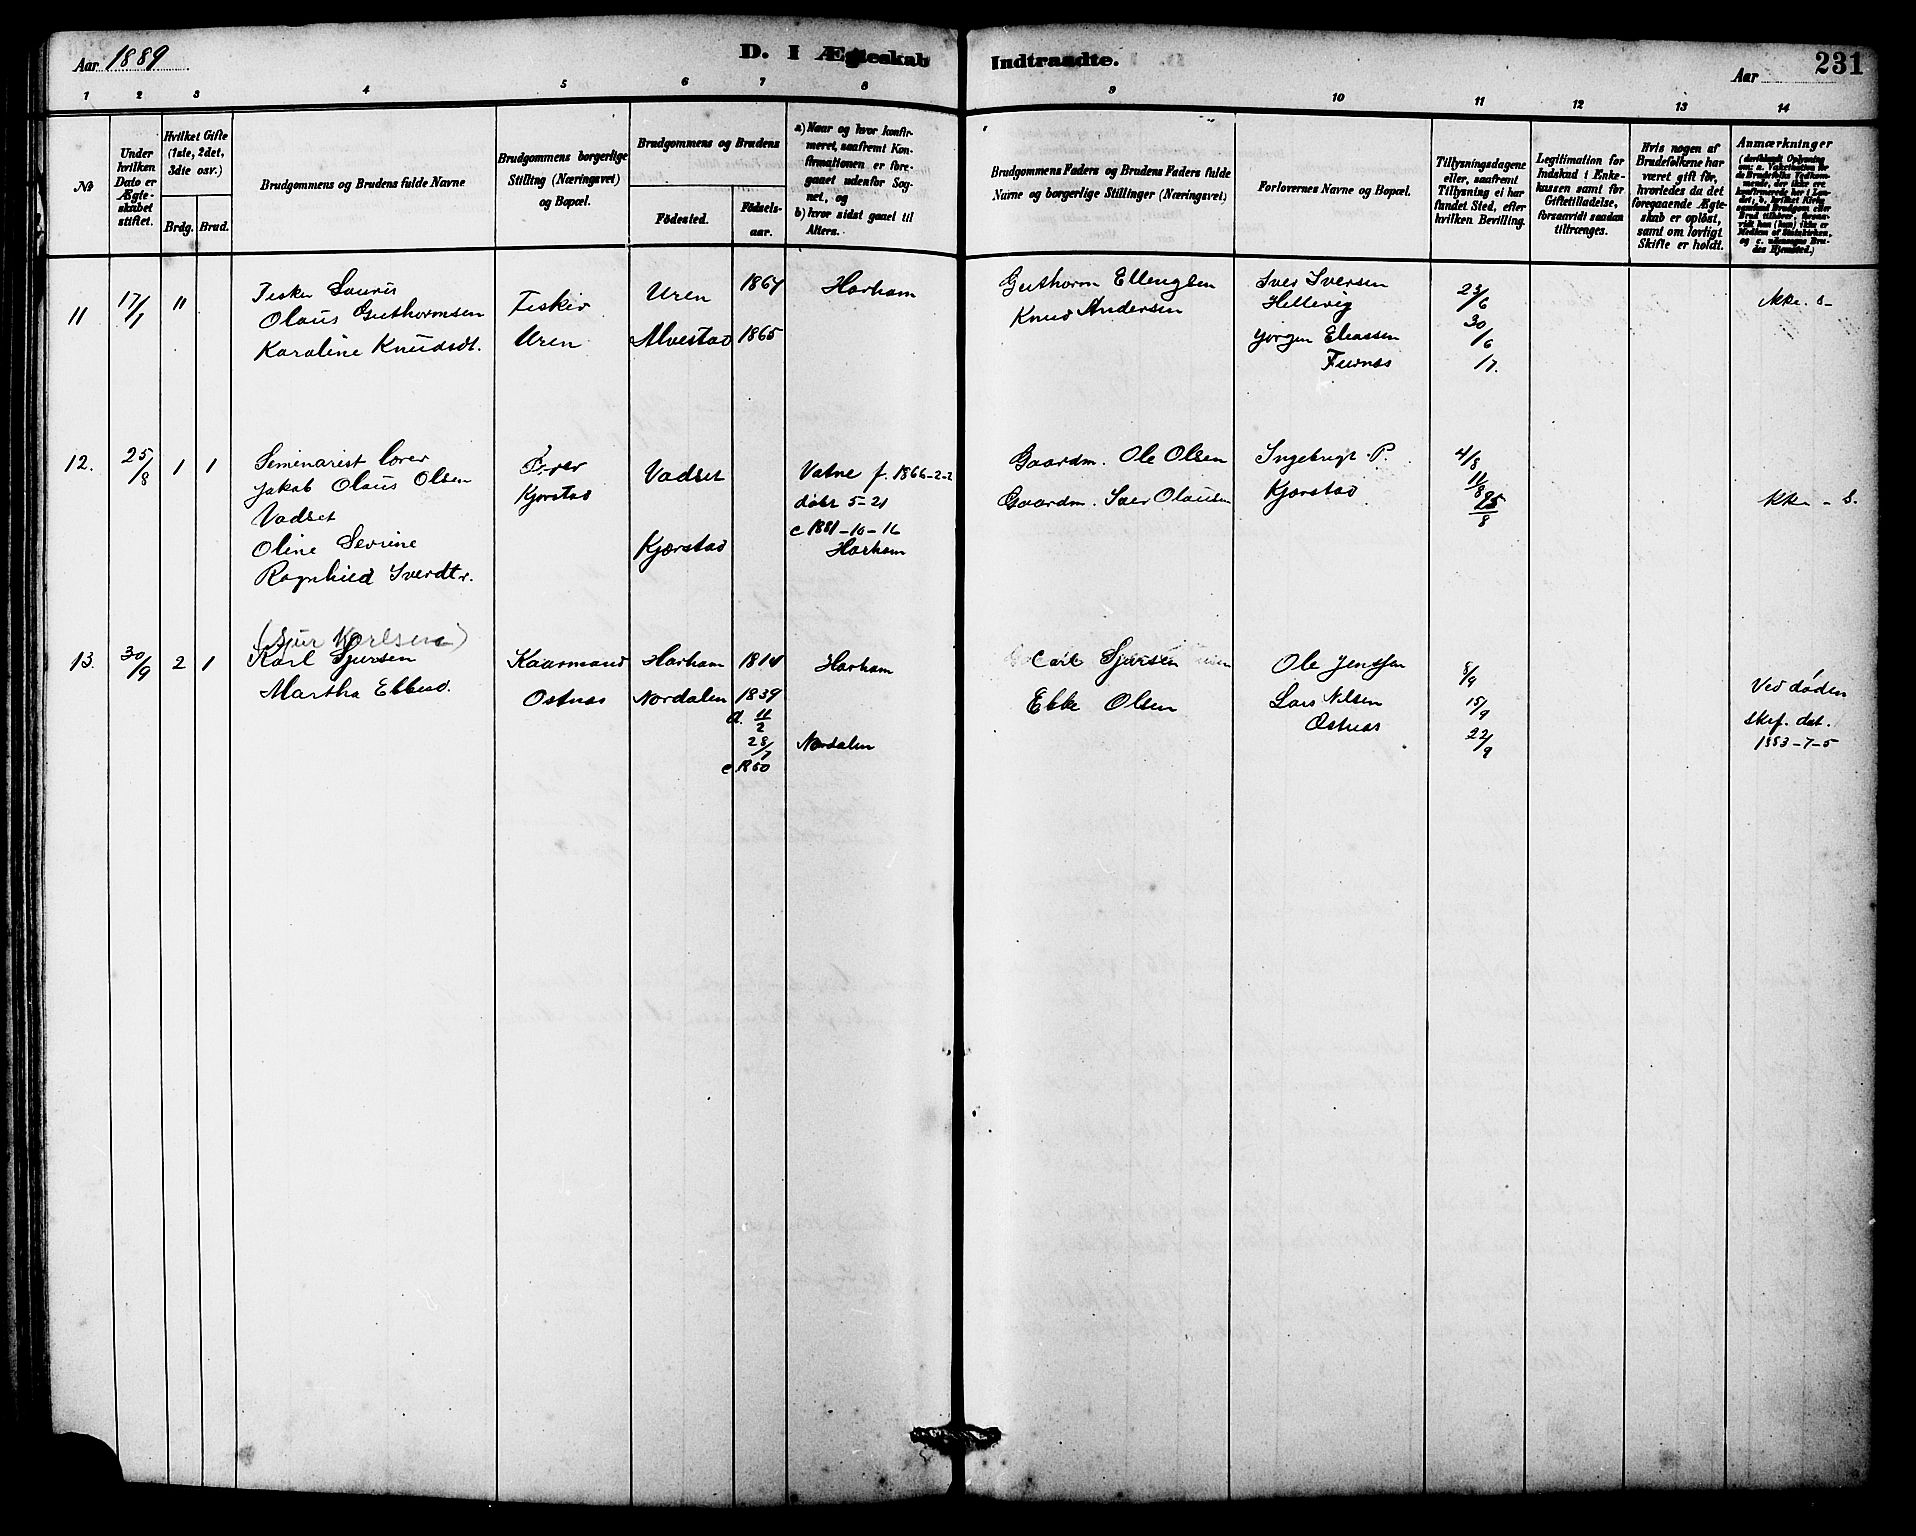 Aar 1889
D. I Ægteskab
Indtraadte.
Aar
231
1 2 3 4 5 6 7 8 9 10 11 12 13 14
№
Under hvilken Dato er Ægteskabet stiftet.
Hvilket Gifte (1ste, 2det, 3die osv.)
Brdg. Brud.
Brudgommens og Brudens fulde Navne
Brudgommens borgerlige Stilling (Næringsvei) og Bopæl.
Brudgommens og Brudens
Födested.
Födselsaar.
a) Naar og hvor konfirmeret, saafremt Konfirmationen er foregaaet udenfor Sognet, og
b) hvor sidst gaaet til Alters.
Brudgommens Faders og Brudens Faders fulde Navne og borgerlige Stillinger (Næringsvei)
Forlovernes Navne og Bopæl.
Tillysningsdagene eller, saafremt Tillysning ei har fundet Sted, efter hvilken Bevilling.
Legitimation for Indskud i Enkekassen samt for Giftetilladelse, forsaavidt saadan tiltrænges.
Hvis nogen af Brudefolkene har været gift før, hvorledes da det foregaaende Ægteskab er opløst, samt om lovligt Skifte er holdt.
Anmærkninger
11 17/1 11
Olaus Guthormsen
Karaline Knudsdt.
Fisker
Uren
Uren 1864
Alvestad 1865
Harham
Guthorm Ellengsen
Knud Andersen
Iver Iversen
Hellevig
Jørgen Eliassen
Furnes
23/6
30/6
/7.
Ikke. s-
12. 25/8 1 1
Seminarist lærer
Jakob Olaus Olsen
Vadset
Oline Sevrine
Ragnhild Iversdtr.
Kjørstad
Vadset
Kjørstad
Vatne f. 1866-2-2
døbt 5-21
c 1881-10-16
Harham
Gaardm. Ole Olsen
Gaardm. Iver Olausen
Ingebrigt P.
Kjørstad
4/8
11/8
25/8
Ikke - s.
(Sjur Karlsen)
13. 30/9 2 1
Karl Sjursen
Martha Ebbesd.
Kaarmand
Østnes
Harham 1814
Nordalen 1839
d 11/2
28/7
c 1850
Harham
Nordalen
Carl Sjursen
Ebbe Olsen
Ole Jenssen
Lars Nilsen
Østnes
8/9
15/9
22/9
Ved døden
skif. dat.
1883-7-5